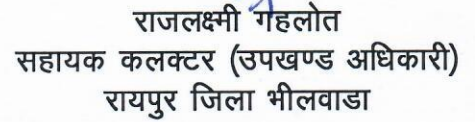 राजलक्ष्मी गहलोत
सहायक कलक्टर (उपखण्ड अधिकारी)
रायपुर जिला भीलवाडा